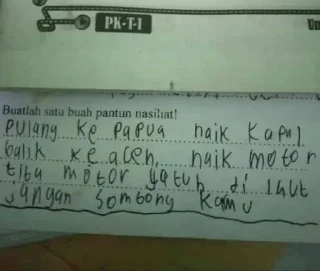 PK-T-I
Un
Buatlah satu buah pantun nasihat!
Pulang ke Papua naik kapal
balik ke aceh, naik motor
tiba motor jatuh di laut
Jangan sombong kamu